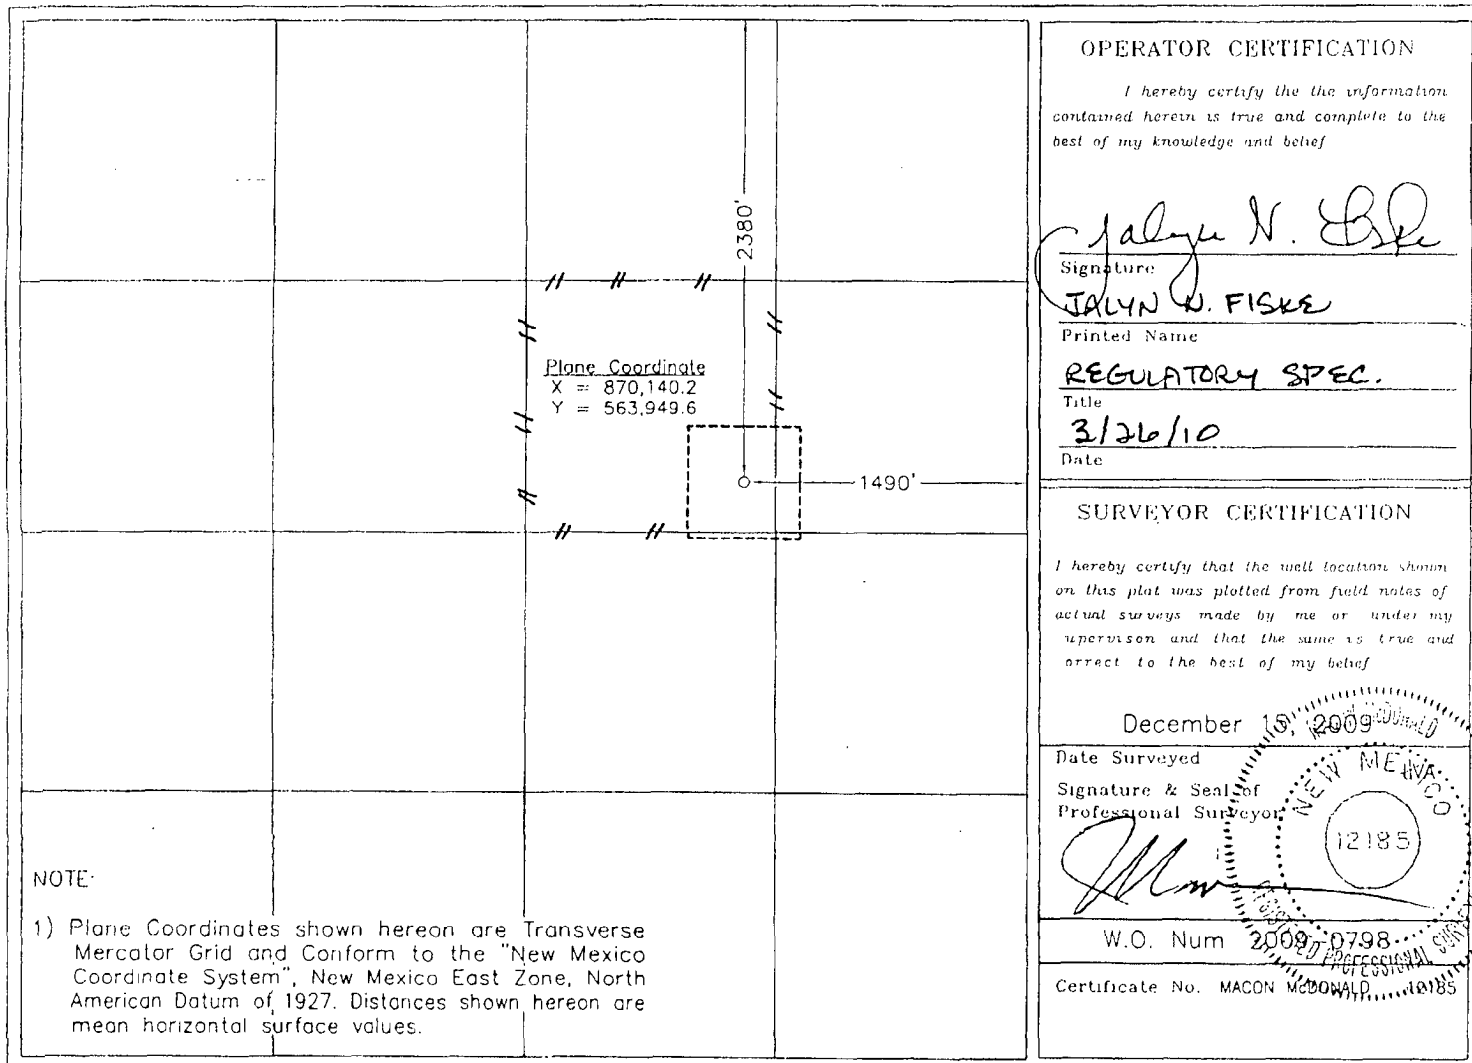 2380'
Plane Coordinate
X = 870,140.2
Y = 563,949.6
1490'
NOTE:
1) Plane Coordinates shown hereon are Transverse
Mercator Grid and Conform to the "New Mexico
Coordinate System", New Mexico East Zone, North
American Datum of 1927. Distances shown hereon are
mean horizontal surface values.
OPERATOR CERTIFICATION
I hereby certify the the information
contained herein is true and complete to the
best of my knowledge and belief
Jalyn N. Fiske
Signature
JALYN N. FISKE
Printed Name
REGULATORY SPEC.
Title
3/26/10
Date
SURVEYOR CERTIFICATION
I hereby certify that the well location shown
on this plat was plotted from field notes of
actual surveys made by me or under my
upervison and that the same is true and
orrect to the best of my belief
December 15, 2009
Date Surveyed
Signature & Seal of
Professional Surveyor
McDONALD
NEW MEXICO
12185
PROFESSIONAL
W.O. Num 2009-0798
Certificate No. MACON McDONALD 12185